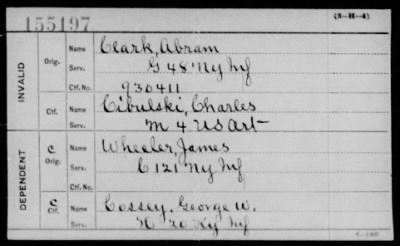 155197
(3-H-4)
INVALID
Orig. Name Clark, Abram
Serv. G 48 Ny Inf
Ctf. No. 930411
Ctf. Name Cibulski, Charles
Serv. M 4 US Art
DEPENDENT
C Orig. Name Wheeler, James
Serv. C 121 Ny Inf
Ctf. No.
C Ctf. Name Cossey, George W.
Serv. H 20 Ky Inf